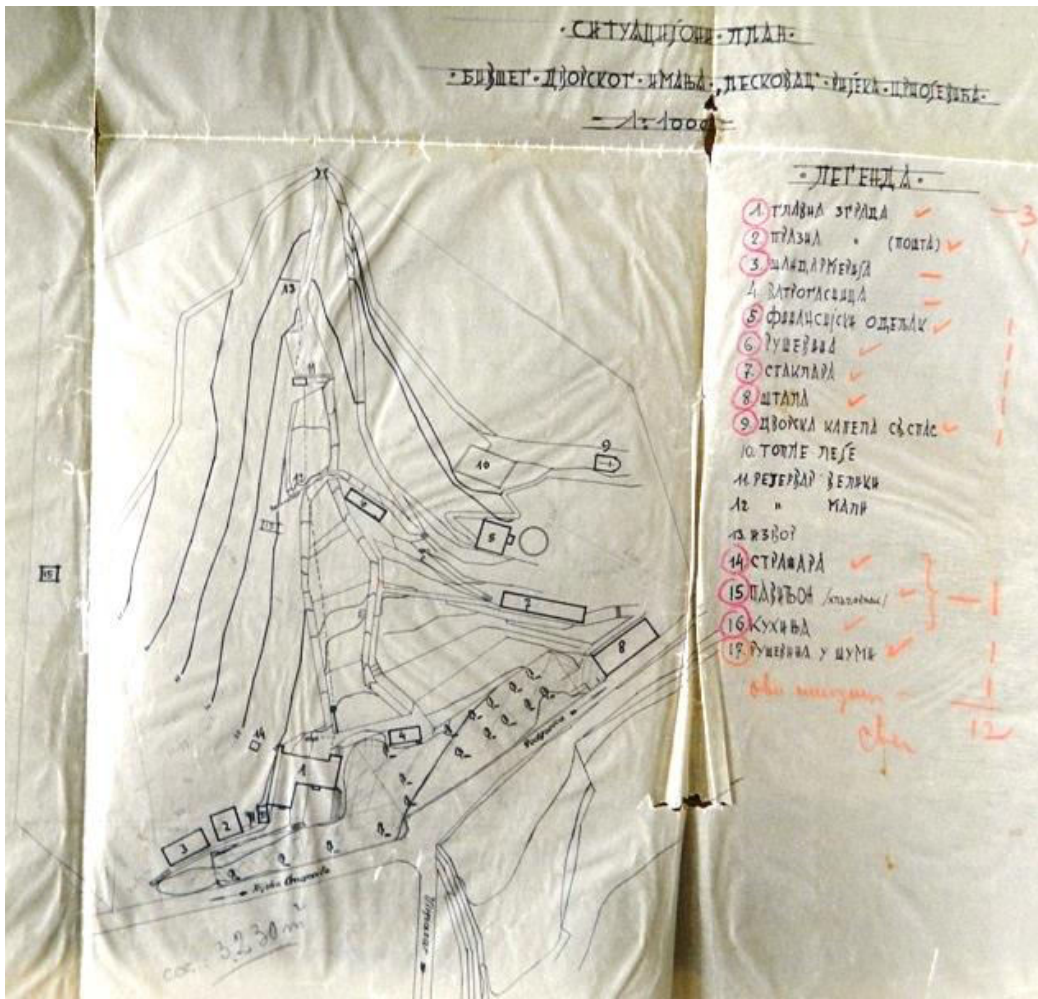 · СИТУАЦИЈОНИ · ПЛАН ·
· БИВШЕГ · ДВОРСКОГ · ИМАЊА · „ЉЕСКОВАЦ" · РИЈЕКА · ЦРНОЈЕВИЋА ·
1:1000
· ЛЕГЕНДА ·
1. ГЛАВНА ЗГРАДА — 3
2 ПРАЗНА " (ПОШТА)
3. ЖАНДАРМЕРИЈА
4. ВАТРОГАСНИЦА
5 ФИНАНСИЈСКИ ОДЕЉАК
6 РУШЕВИНА
7. СТАКЛАРА
8 ШТАЛА
9. ДВОРСКА КАПЕЛА СВ. СПАС
10. ТОПЛЕ ЛЕЈЕ
11. РЕЗЕРВАР ВЕЛИКИ
12 " МАЛИ
13. ИЗВОР
14 СТРАЖАРА
15. ПАВИЉОН
16. КУХИЊА
17. РУШЕВИНА У ШУМИ
12
13
11
9
10
12
6
5
15
7
8
14
4
Подгорица
1
2
3
3230 m²